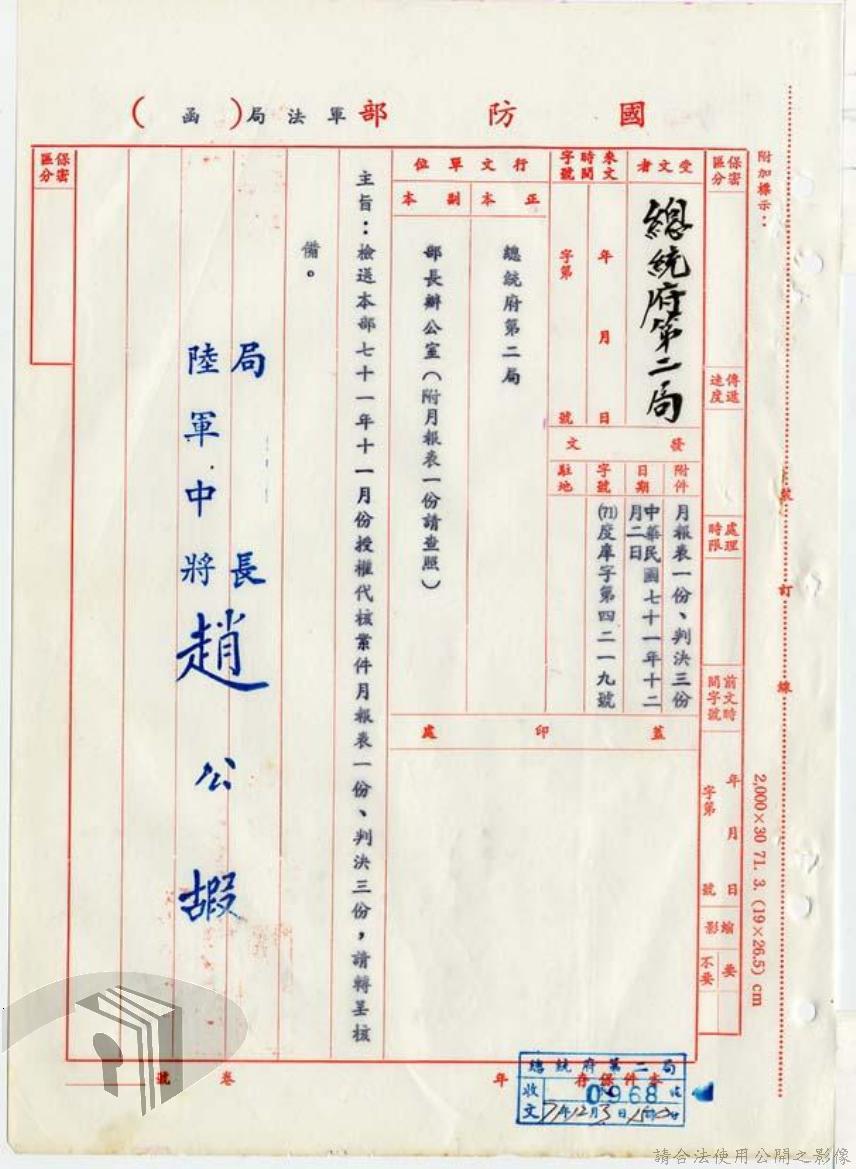 國防部軍法局(函)
附加標示：
保密區分
傳遞速度
處理時限
前文時間字號
年月日
字第號
縮影
要
不要
受文者
總統府第二局
來文時間字號
年月日
字第號
發文
附件
月報表一份、判決三份
日期
中華民國七十一年十二月二日
字號
(71)度庫字第四二一九號
駐地
行文單位
正本
總統府第二局
副本
部長辦公室(附月報表一份請查照)
蓋印處
主旨：檢送本部七十一年十一月份授權代核案件月報表一份、判決三份，請轉呈核
備。
局長
陸軍中將趙公嘏
保密區分
裝訂線
2,000×30 71. 3. (19×26.5) cm
本件保存年
卷號
總統府第二局
收文
0968
71年12月3日
請合法使用公開之影像